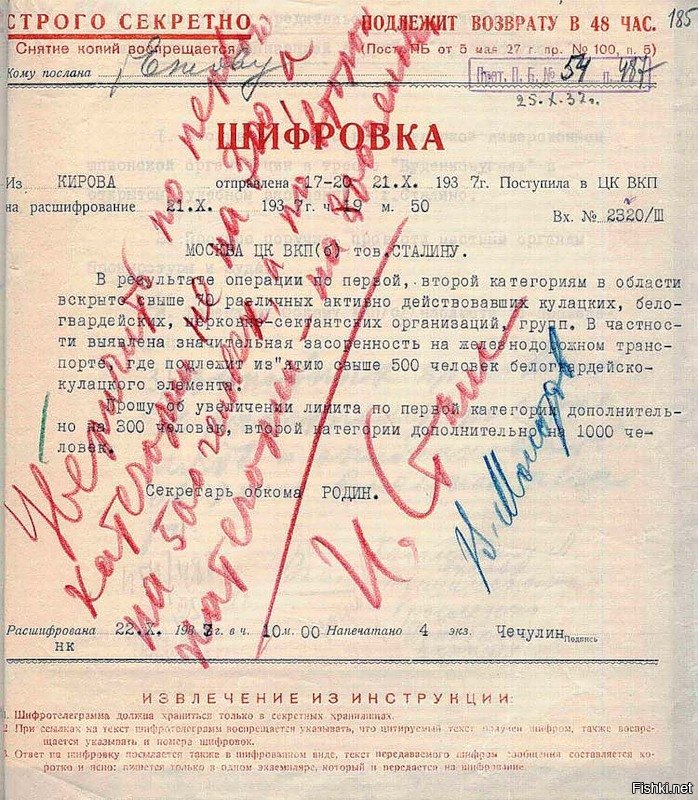 СТРОГО СЕКРЕТНО
Снятие копий воспрещается
ПОДЛЕЖИТ ВОЗВРАТУ В 48 ЧАС.
185
(Пост. ПБ от 5 мая 27 г. пр. № 100, п. 5)
Кому послана Ежову
Прот. П. Б. № 54 п. 487
25.X.37г.
ШИФРОВКА
Из КИРОВА отправлена 17-20 21.X. 1937г. Поступила в ЦК ВКП
на расшифрование 21.X. 1937г. ч. 19 м. 50
Вх. № 2320/Ш
МОСКВА ЦК ВКП(б) тов. СТАЛИНУ.
В результате операции по первой, второй категориям в области
вскрыто свыше 70 различных активно действовавших кулацких, бело-
гвардейских, церковно-сектантских организаций, групп. В частнос
ти выявлена значительная засоренность на железнодорожном транс-
порте, где подлежит из"ятию свыше 500 человек белогвардейско-
кулацкого элемента.
Прошу об увеличении лимита по первой категории дополнитель-
но на 300 человек, второй категории дополнительно на 1000 че-
ловек.
Секретарь обкома РОДИН.
Увеличить по первой
категории не на 300, а
на 500 человек, а по второй
категории —
И. Сталин
В. Молотов
Расшифрована 22.X. 1937 г в ч. 10 м. 00 Напечатано 4 экз. Чечулин Подпись
нк
ИЗВЛЕЧЕНИЕ ИЗ ИНСТРУКЦИИ:
1. Шифротелеграмма должна храниться только в секретных хранилищах.
2. При ссылках на текст шифротелеграмм воспрещается указывать, что цитируемый текст получен шифром, также воспре-
щается указывать и номера шифровок.
3. Ответ на шифровку посылается также в шифрованном виде, текст передаваемого шифром сообщения составляется ко-
ротко и ясно: пишется только в одном экземпляре, который и передается на шифрование.
Fishki.net